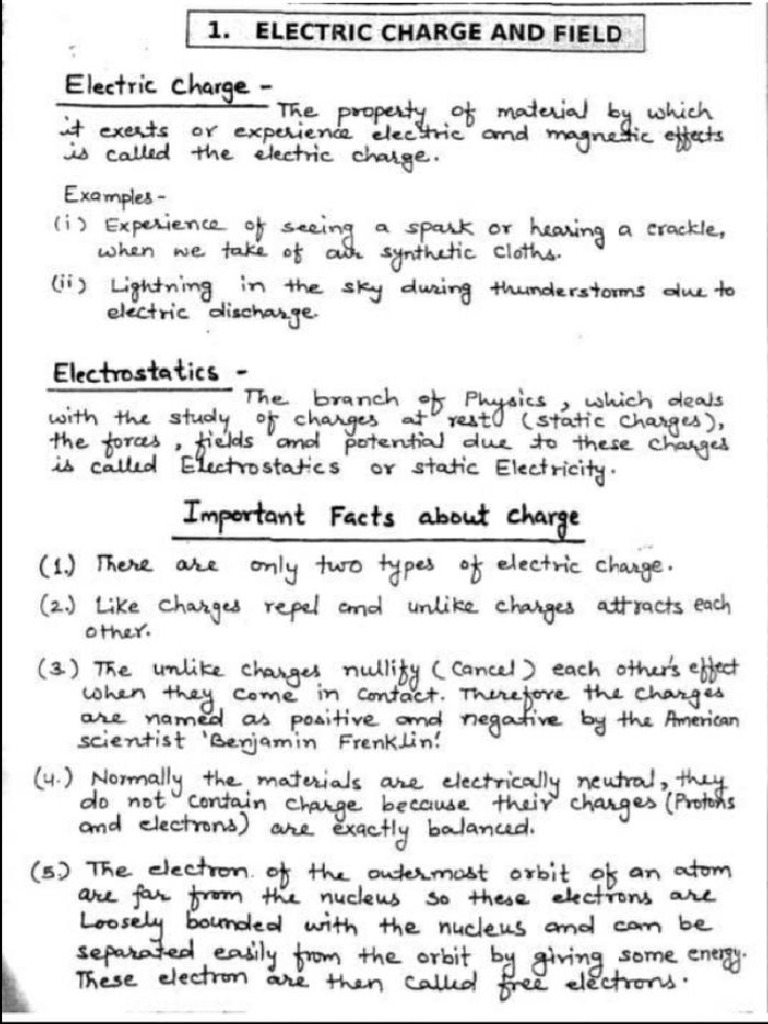 1. ELECTRIC CHARGE AND FIELD
Electric Charge -
The property of material by which
it exerts or experience electric and magnetic effects
is called the electric charge.
Examples -
(i) Experience of seeing a spark or hearing a crackle,
when we take of our synthetic cloths.
(ii) Lightning in the sky during thunderstorms due to
electric discharge.
Electrostatics -
The branch of Physics, which deals
with the study of charges at rest (static charges),
the forces, fields and potential due to these charges
is called Electrostatics or static Electricity.
Important Facts about charge
(1.) There are only two types of electric charge.
(2.) Like charges repel and unlike charges attracts each
other.
(3.) The unlike charges nullify (cancel) each other's effect
when they come in contact. Therefore the charges
are named as positive and negative by the American
scientist 'Benjamin Frenklin'.
(4.) Normally the materials are electrically neutral, they
do not contain charge because their charges (Protons
and electrons) are exactly balanced.
(5.) The electron of the outermost orbit of an atom
are far from the nucleus so these electrons are
Loosely bounded with the nucleus and can be
separated easily from the orbit by giving some energy.
These electron are then called free electrons.